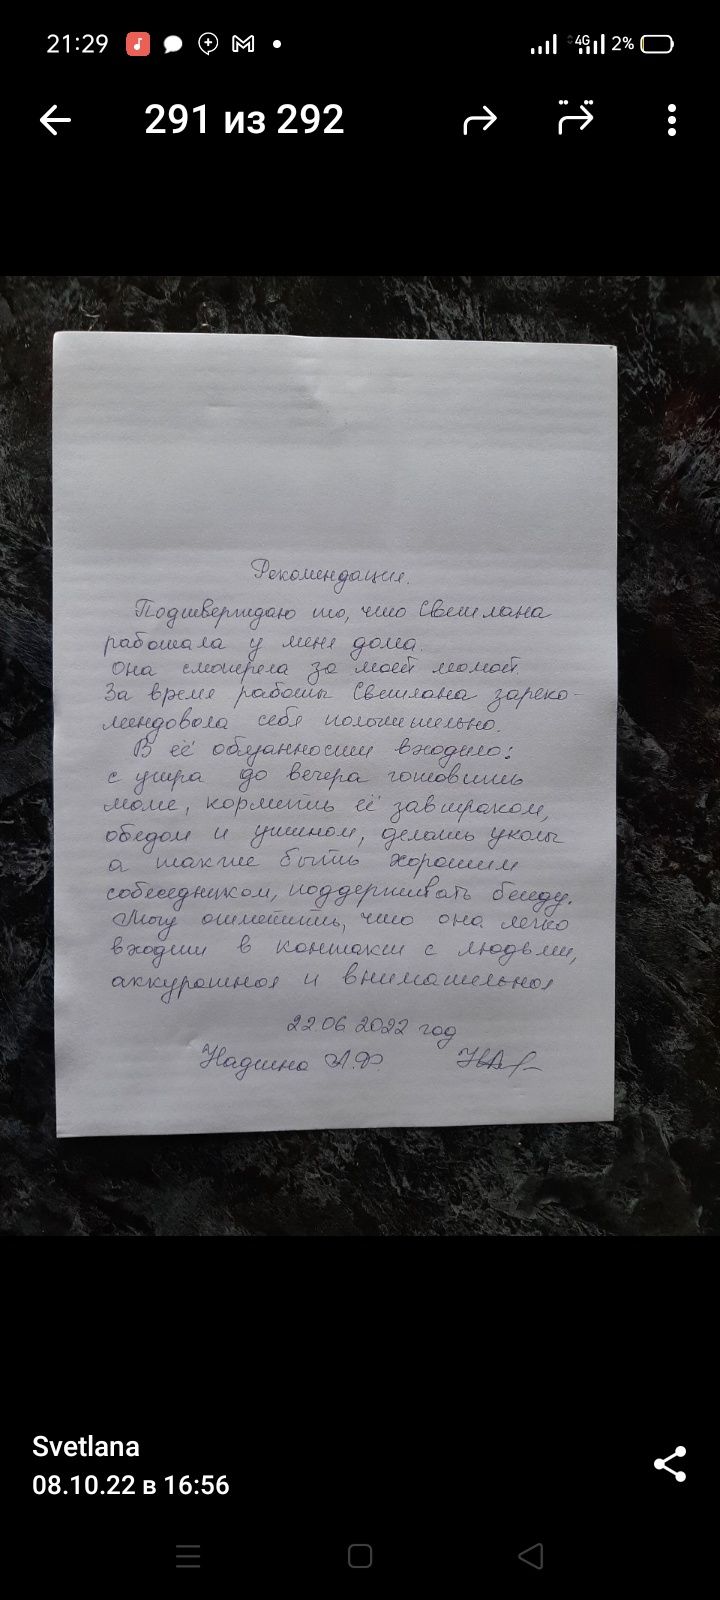 21:29
4G 2%
291 из 292
Рекомендация.
Подтверждаю то, что Светлана
работала у меня дома.
Она смотрела за моей мамой.
За время работы Светлана зареко-
мендовала себя положительно.
В её обязанности входило:
с утра до вечера готовить
маме, кормить её завтраком,
обедом и ужином, делать уколы
а также быть хорошим
собеседником, поддерживать беседу.
Могу отметить, что она легко
входит в контакт с людьми,
аккуратная и внимательная
22.06 2022 год
А.Ф.
Svetlana
08.10.22 в 16:56